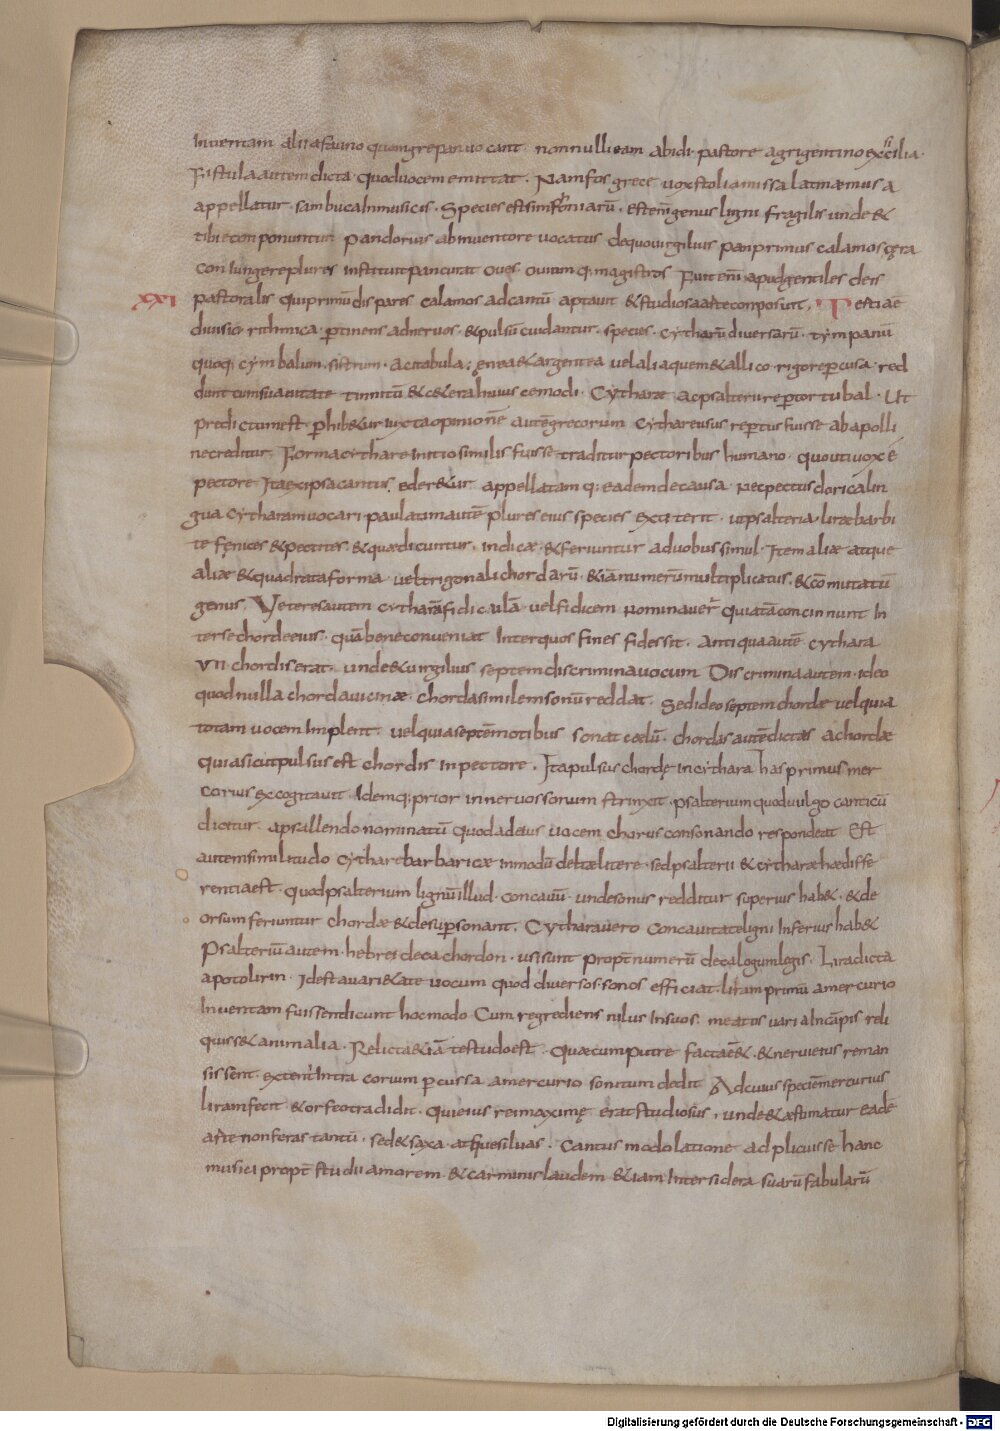 Inventam alii a fauno quem grepan vocant · nonnulli eam ab idi · pastore agrigentino ex cicilia ·
Fistula autem dicta · quod vocem emittat · Nam fos grece vox stolia missa latinae musa
appellatur · sambuca In musicis · Species est simphoniarū · est enī genus ligni fragilis unde &
tibie conponuntur pandorius ab inventore vocatus de quo virgilius pan primus calamos cęra
coniungere plures instituit pan curat oves · ovium q; magistros Fuit enī apud gentiles deus
XXI pastoralis qui primū dispares calamos ad cantū aptavit & studiosa arte conposuit, Tertia e
divisio rithmica · ptinens ad nervos · & pulsū cui dantur · species · cytharū diversarū · tympanū
quoq; cymbalum · sistrum · acitobula; ęnea & argentea vel alia quem & allico · rigore percusa · red
dunt cum suavitate tinnitū & c&era huius cemodi · Cytharae ac psalterii repertor tubal · Ut
predictum est · phib&ur iuxta opinionē autē grecorum cythare usus reptus fuisse ab apolli
ne creditur Forma cythare Initio similis fuisse traditur pectori bus humano · quo uti vox e
pectore Ita ex ipsa cantus · eder&ur appellatam q; eadem de causa · Nec pectus dorica lin
gua cytharam vocari · paulatim autē plures eius species extiterit · ut psalteria lirae barbi
te fęnices & pectites · & quae dicuntur · indicae · & feriuntur a duobus simul · Item aliae atque
aliae & quadrata forma vel trigonali chordarū · &iā numerū multiplicatus · & cōmutatū
genus · Veteres autem cytharā fidiculā · vel fidicem nominaver̄ quia tā concinnunt In
ter se chorde eius · quā bene conveniat Inter quos fines fides sit · Antiqua autē cythara
VII · chordis erat · unde & virgilius septem discrimina vocum Discrimina autem · ideo
quod nulla chorda vicinae · chorda similem sonū reddat · Sed ideo septem chordae vel quia
totam vocem Implent · vel quia septē motibus sonat cęlū · chordas autē dictas a chordae
quia sicut pulsus est chordis in pectore · Ita pulsus chordę in cythara has primus mer
corius excogitavit · Idemq; prior in nervos sonum strinxit · psalterium quod vulgo canticū
dicitur · a psallendo nominatū quod ad eius vocem chorus consonando respondeat Est
autem similitudo cythare barbaricae in modū deltae litere · sed psalterii & cytharae haec diffe
rentia est · quod psalterium lignū illud · concavū · unde sonus redditur superius hab& · & de
orsum feriuntur chordae & desup sonant · Cythara vero concavitate ligni Inferius hab&
Psalteriū autem · hebrei decachordon · usi sunt propt numerū decalogum legis · Lira dicta
apotolirin · Id est a vari&ate vocum quod diversos · sonos efficiat · liram primū a mercurio
Inventam fuisse ndicunt hoc modo · Cum regrediens nilus In suos · meatus varia In cāpis reli
quiss& animalia · Relicta &iā testudo est · quae cum putre facta ē& · & nervi eius reman
sissent · extenti Intra corium pcussa a mercurio sonitum dedit Ad cuius speciē mercurius
liram fecit & orfeo tradidit · qui eius rei maximę erat studiosus, unde & aestimatur eadē
arte non feras tantū · sed & saxa · atque silvas · Cantus modolatione adplicuisse hanc
musici propt studii amorem · & carminis laudem &iam Inter sidera suarū fabularū
Digitalisierung gefördert durch die Deutsche Forschungsgemeinschaft - DFG